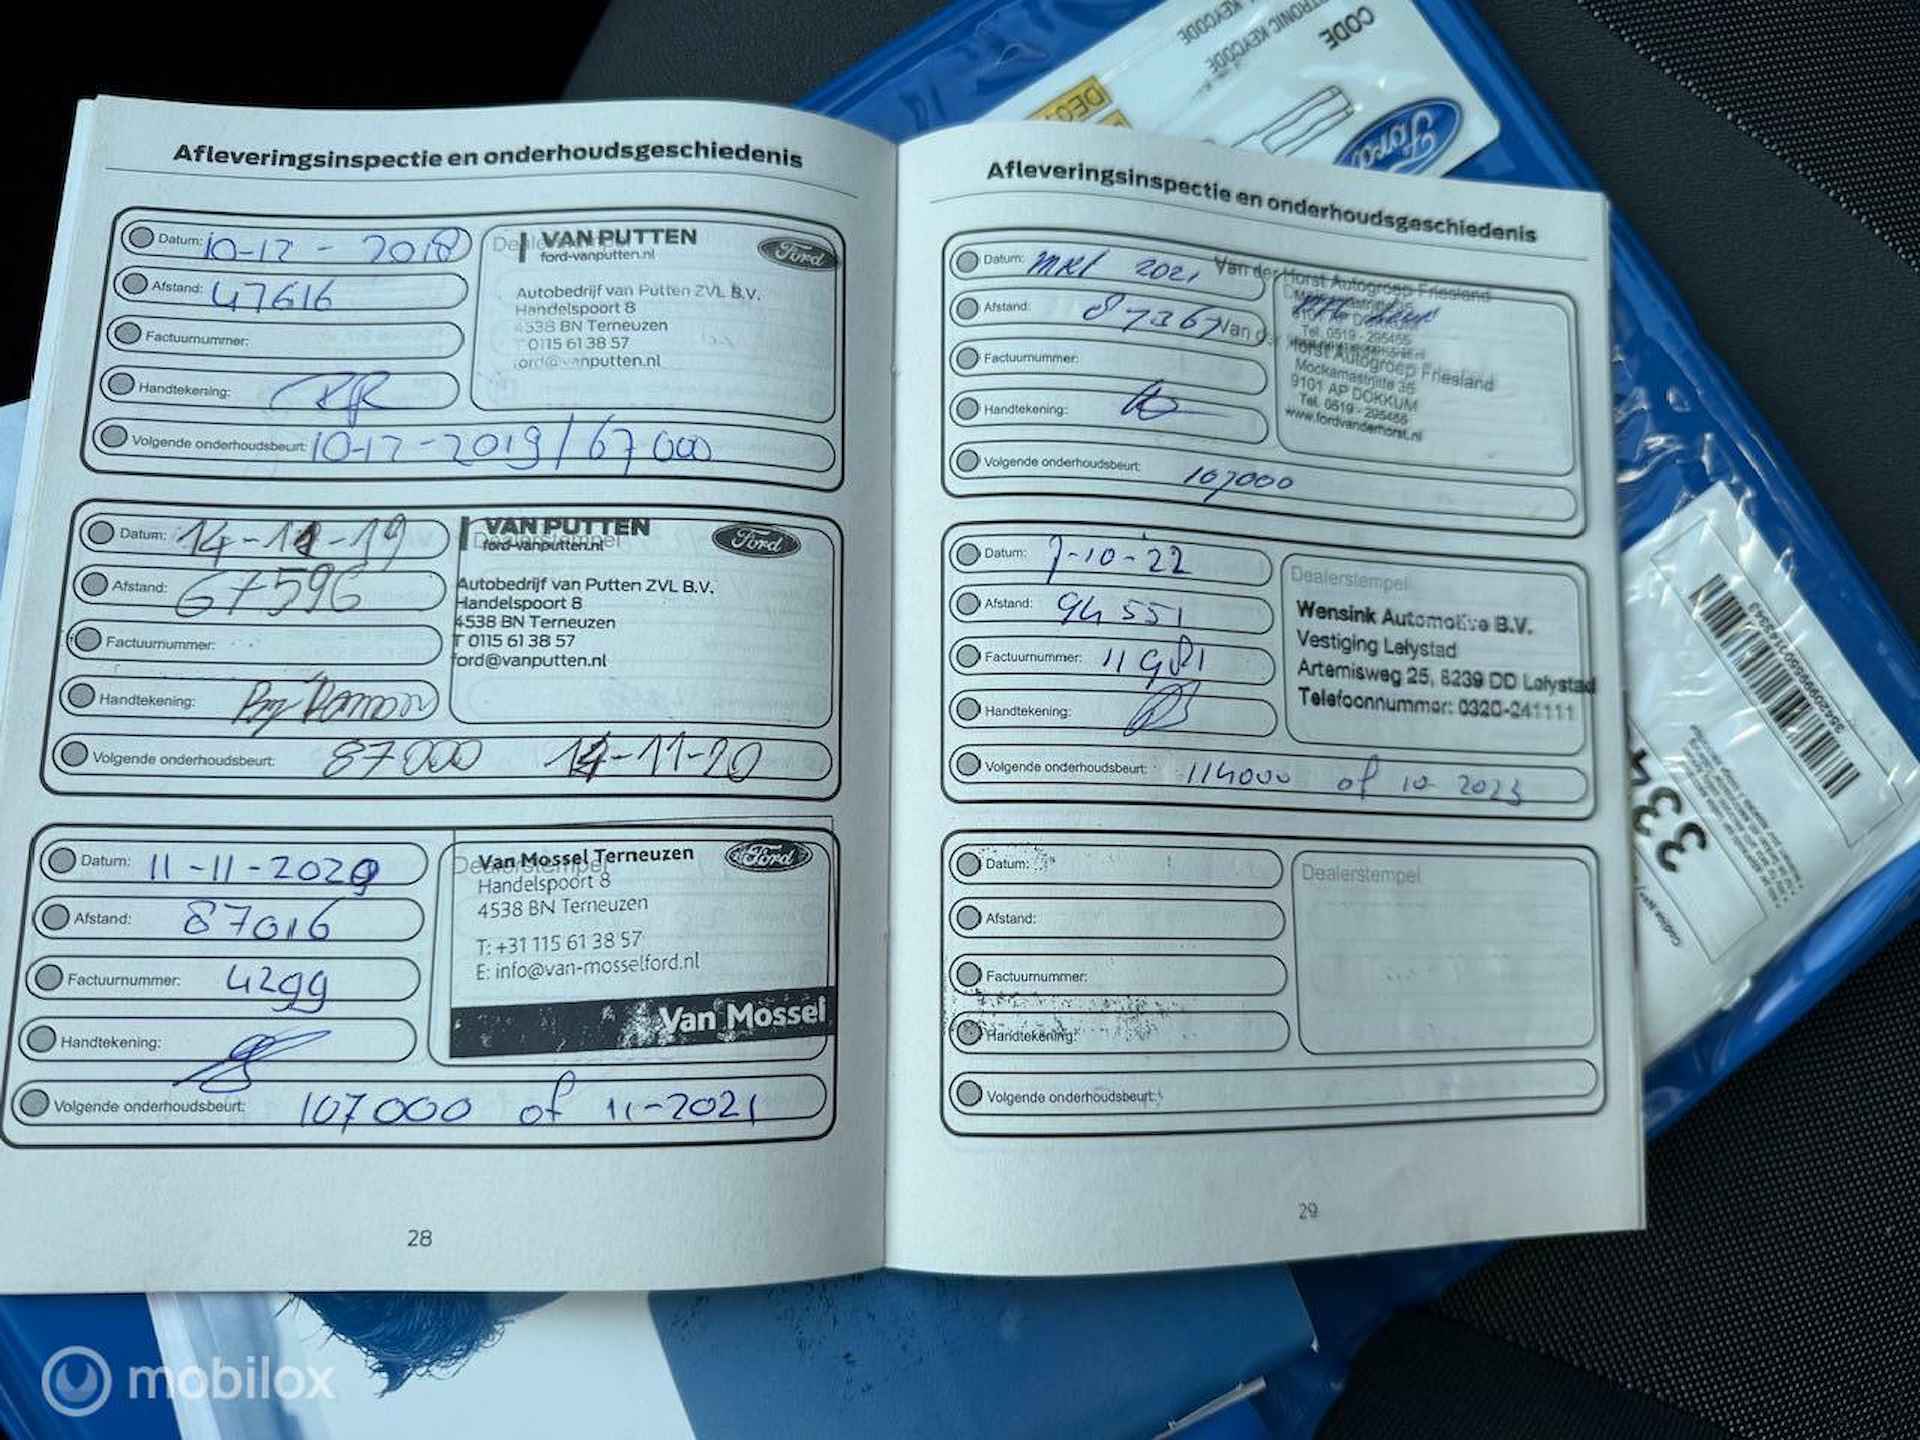 Afleveringsinspectie en onderhoudsgeschiedenis
Datum: 10-12 - 2018
Afstand: 47616
Factuurnummer:
Handtekening:
Volgende onderhoudsbeurt: 10-12-2019 / 67000
VAN PUTTEN
ford-vanputten.nl
Ford
Autobedrijf van Putten ZVL B.V.
Handelspoort 8
4538 BN Terneuzen
T 0115 61 38 57
ford@vanputten.nl
Datum: 14-11-19
Afstand: 67596
Factuurnummer:
Handtekening:
Volgende onderhoudsbeurt: 87000 14-11-20
VAN PUTTEN
ford-vanputten.nl
Ford
Autobedrijf van Putten ZVL B.V.
Handelspoort 8
4538 BN Terneuzen
T 0115 61 38 57
ford@vanputten.nl
Datum: 11-11-2020
Afstand: 87016
Factuurnummer: 4299
Handtekening:
Volgende onderhoudsbeurt: 107000 of 11-2021
Dealerstempel
Van Mossel Terneuzen
Ford
Handelspoort 8
4538 BN Terneuzen
T: +31 115 61 38 57
E: info@van-mosselford.nl
Van Mossel
28
Afleveringsinspectie en onderhoudsgeschiedenis
Datum: MRT 2021
Afstand: 87367
Factuurnummer:
Handtekening:
Volgende onderhoudsbeurt: 107000
Van der Horst Autogroep Friesland
Tel. 0519 - 295455
Van der Horst Autogroep Friesland
Mockamastrjitte 35
9101 AP DOKKUM
Tel. 0519 - 295455
www.fordvanderhorst.nl
Datum: 7-10-22
Afstand: 94551
Factuurnummer: 11981
Handtekening:
Volgende onderhoudsbeurt: 114000 of 10-2023
Dealerstempel
Wensink Automotive B.V.
Vestiging Lelystad
Artemisweg 25, 8239 DD Lelystad
Telefoonnummer: 0320-241111
Datum:
Afstand:
Factuurnummer:
Handtekening:
Volgende onderhoudsbeurt:
Dealerstempel
29
CODE
KEYCODE
KEYCODE
Ford
334
mobilox